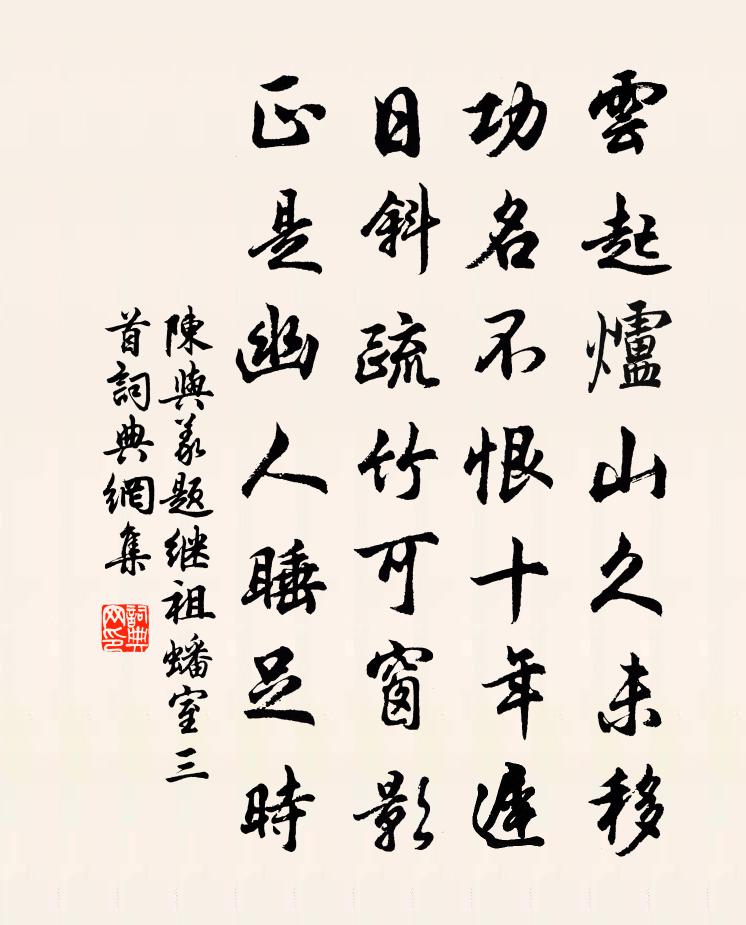 雲起爐山久未移
功名不恨十年遲
日斜疏竹可窗影
正是幽人睡足時
陳與義題继祖蟠室三
首詞典網集
詞典
网印